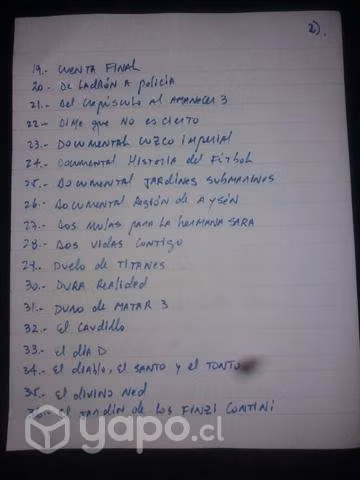 2).
19.- CUENTA FINAL
20.- DE LADRÓN A POLICÍA
21.- DEL CREPÚSCULO AL AMANECER 3
22.- DIME QUE NO ES CIERTO
23.- DOCUMENTAL CUZCO IMPERIAL
24.- DOCUMENTAL HISTORIA DEL FÚTBOL
25.- DOCUMENTAL JARDINES SUBMARINOS
26.- DOCUMENTAL REGIÓN DE AYSÉN
27.- DOS MULAS PARA LA HERMANA SARA
28.- DOS VIDAS CONTIGO
29.- DUELO DE TITANES
30.- DURA REALIDAD
31.- DURO DE MATAR 3
32.- EL CAUDILLO
33.- EL DÍA D
34.- EL DIABLO, EL SANTO Y EL TONTO
35.- EL DIVINO NED
36.- EL JARDÍN DE LOS FINZI CONTINI
yapo.cl